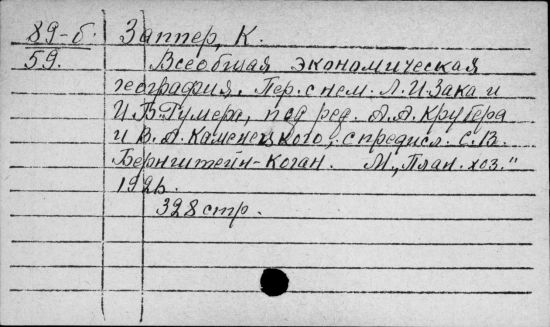 89-б. Заппер, К.
59. Всеобщая экономическая
география. Пер. с нем. Л.И. Зака и
И.Б. Румера, под ред. А.А. Крубера
и В.А. Каменецкого, с предисл. С.В.
Бернштейн-Коган. М., „План. хоз."
1926.
328 стр.